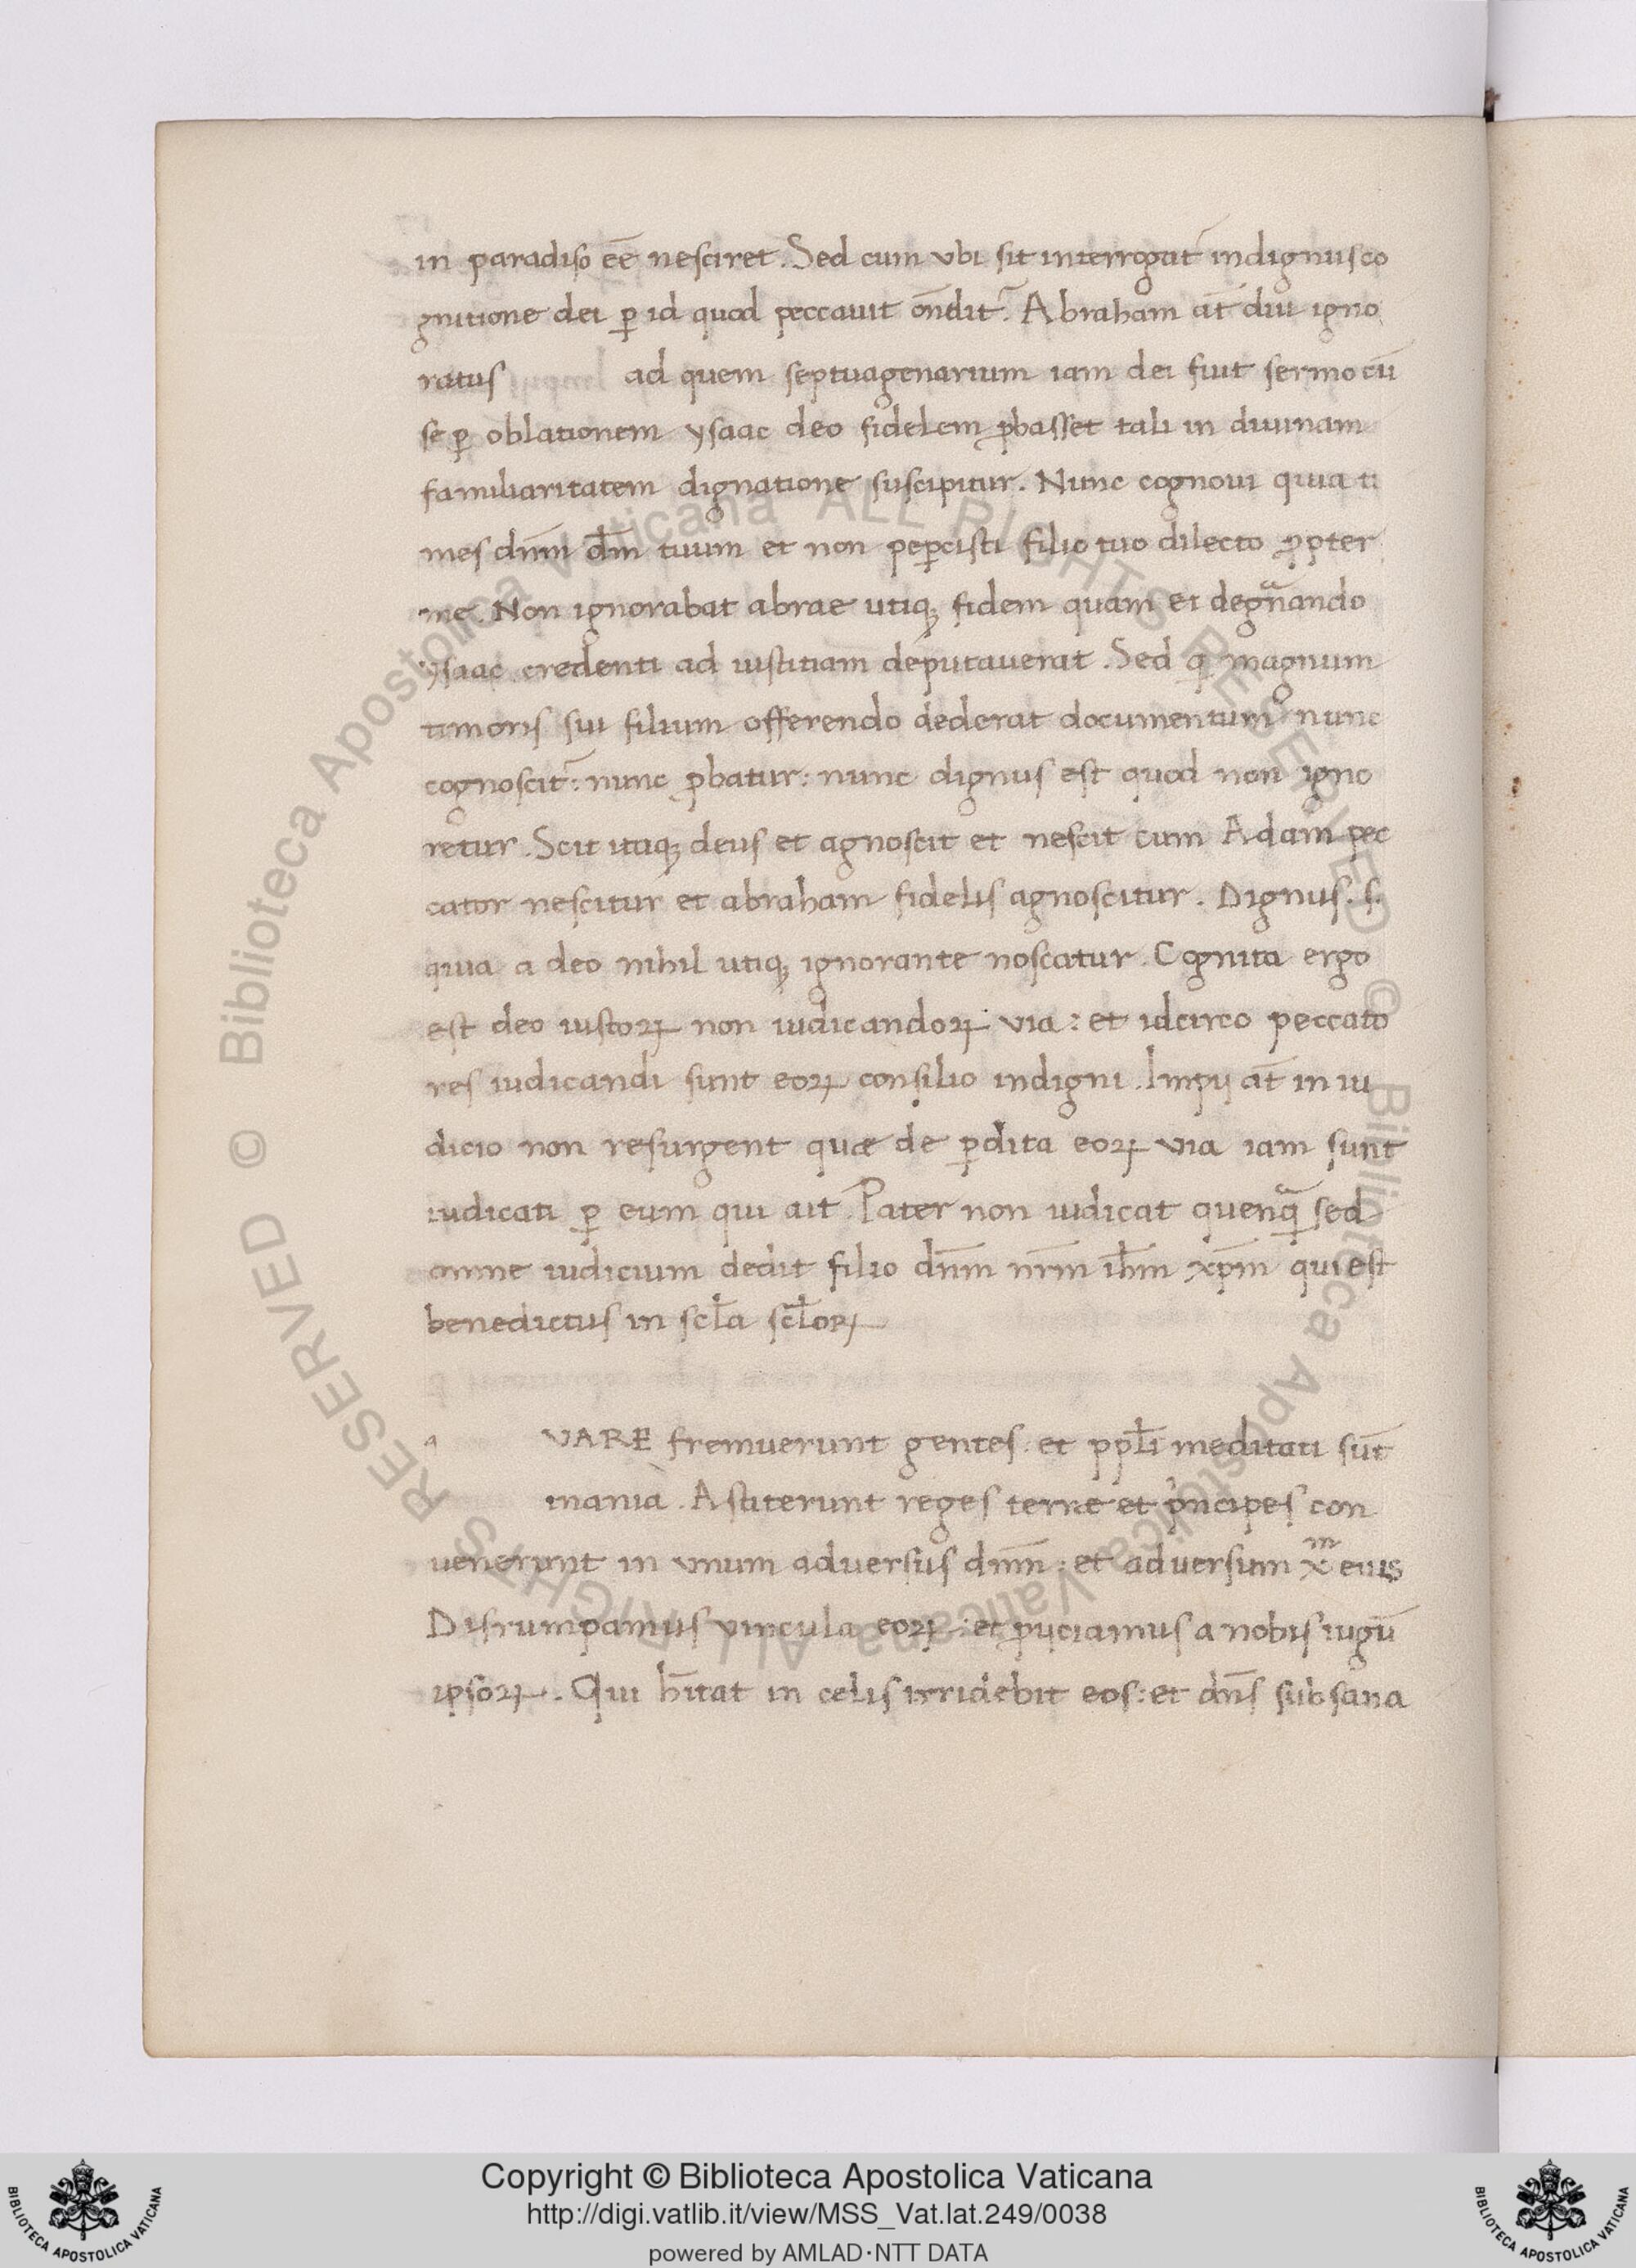 in paradiso eē nesciret. Sed cum vbi sit interrogat᷑ indignus co
gnitione dei ꝑ id quod peccauit on̄dit᷑. Abraham at̄ diu igno
ratus ad quem septuagenarium iam dei fuit sermo cū
se ꝑ oblationem ysaac deo fidelem ꝓbasset tali in diuinam
familiaritatem dignatione suscipitur. Nunc cognoui quia ti
mes dnm̄ dm̄ tuum et non peꝑcisti filio tuo dilecto ꝓpter
me. Non ignorabat abrae utiqꝫ fidem quam et
ysaac credenti ad iustitiam deputauerat. Sed q magnum
timoris sui filium offerendo dederat documentum nunc
cognoscit᷑: nunc ꝓbatur: nunc dignus est quod non igno
retur. Scit itaqꝫ deus et agnoscit et nescit cum Adam pec
cator nescitur et abraham fidelis agnoscitur. Dignus. s.
quia a deo nihil utiqꝫ ignorante noscatur. Cognita ergo
est deo iustoꝝ non iudicandoꝝ via: et idcirco peccato
res iudicandi sunt eoꝝ consilio indigni. Impij at̄ in iu
dicio non resurgent quæ de ꝑdita eoꝝ via iam sunt
iudicati ꝑ eum qui ait. Pater non iudicat quenꝗ̃ sed
omne iudicium dedit filio dnm̄ nrm̄ ihm̄ xpm̄ qui est
benedictus in scl̄a scl̄oꝝ
VARE fremuerunt gentes: et ppl̄i meditati sūt
inania. Astiterunt reges terre et pͥncipes con
uenerunt in vnum aduersus dnm̄: et aduersum xᵐ eius
Disrumpamus vincula eoꝝ: et ꝓijciamus a nobis iugū
ipsoꝝ. Qui hītat in celis irridebit eos: et dn̄s subsana
Copyright © Biblioteca Apostolica Vaticana
http://digi.vatlib.it/view/MSS_Vat.lat.249/0038
powered by AMLAD·NTT DATA
BIBLIOTECA APOSTOLICA VATICANA
BIBLIOTECA APOSTOLICA VATICANA
© Biblioteca Apostolica Vaticana ALL RIGHTS RESERVED © Biblioteca Apostolica Vaticana ALL RIGHTS RESERVED